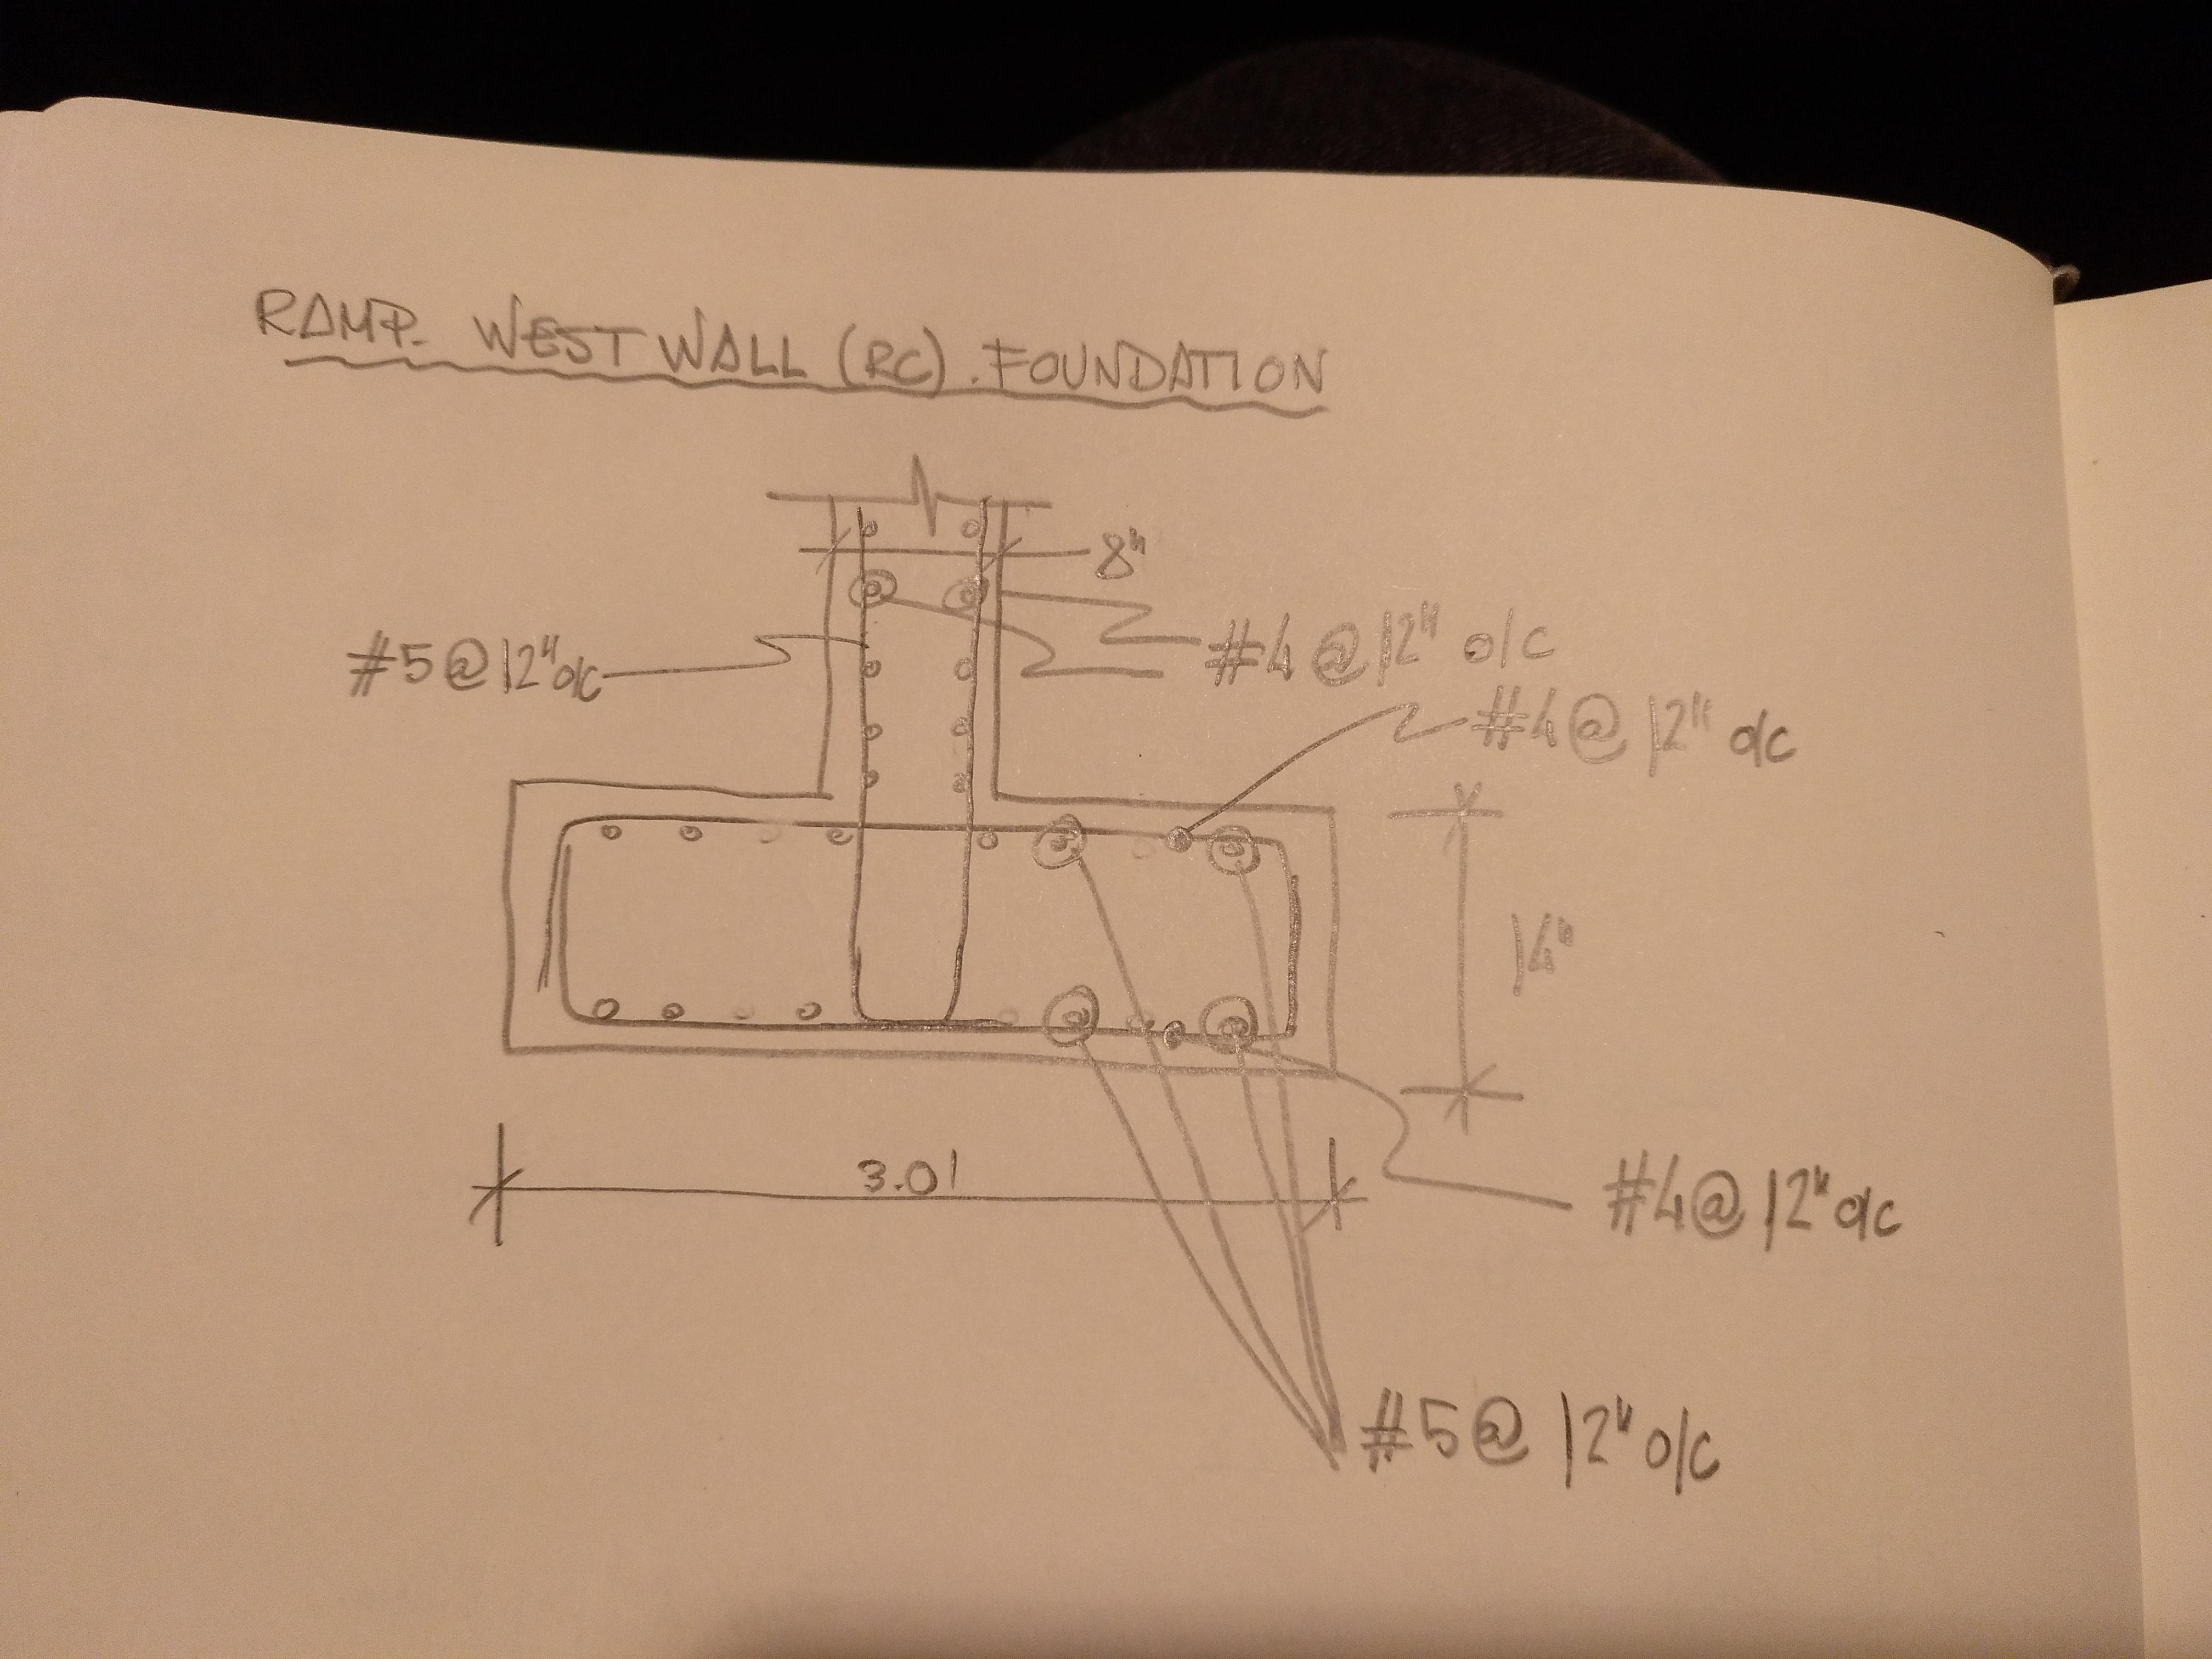 RAMP. WEST WALL (RC). FOUNDATION
8"
#5 @ 12" o/c
#4 @ 12" o/c
#4 @ 12" o/c
14"
3.0'
#4 @ 12" o/c
#5 @ 12" o/c